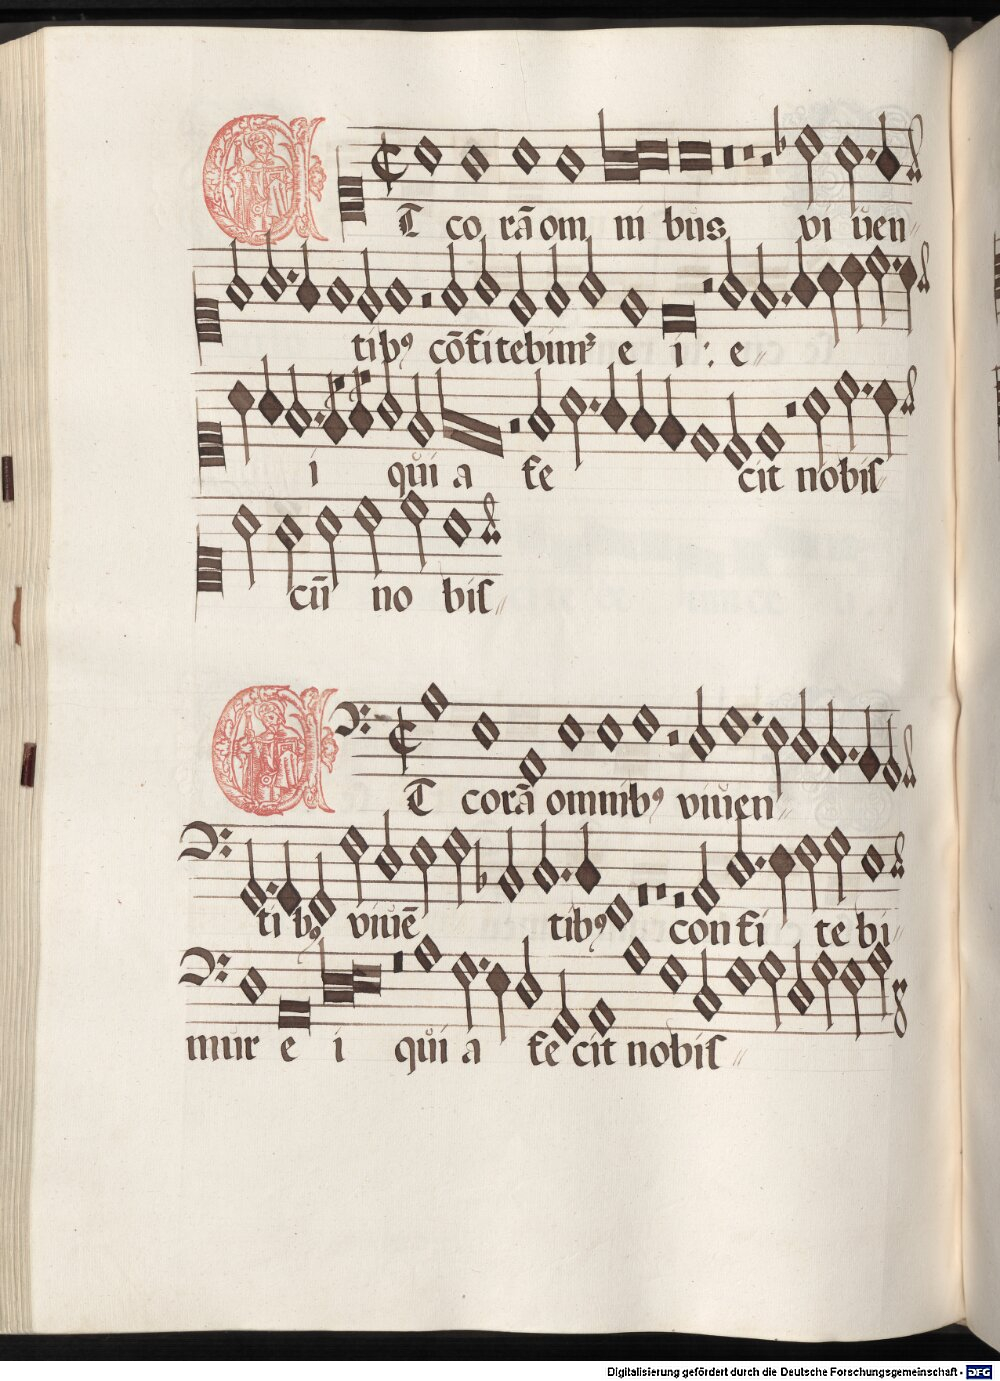 ET corā om ni bus vi uen
tibꝯ cōfitebimur e i : e
i qui a fe cit nobis
cū no bis
ET corā omnibꝯ viuen
ti bꝯ viuē tibꝯ confi te bi
mur e i qui a fe cit nobis
Digitalisierung gefördert durch die Deutsche Forschungsgemeinschaft - DFG